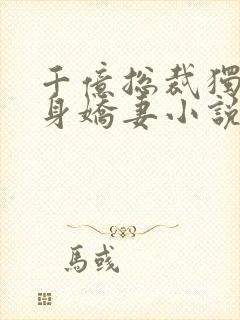 千億總裁獨
身嬌妻小說
馬彧